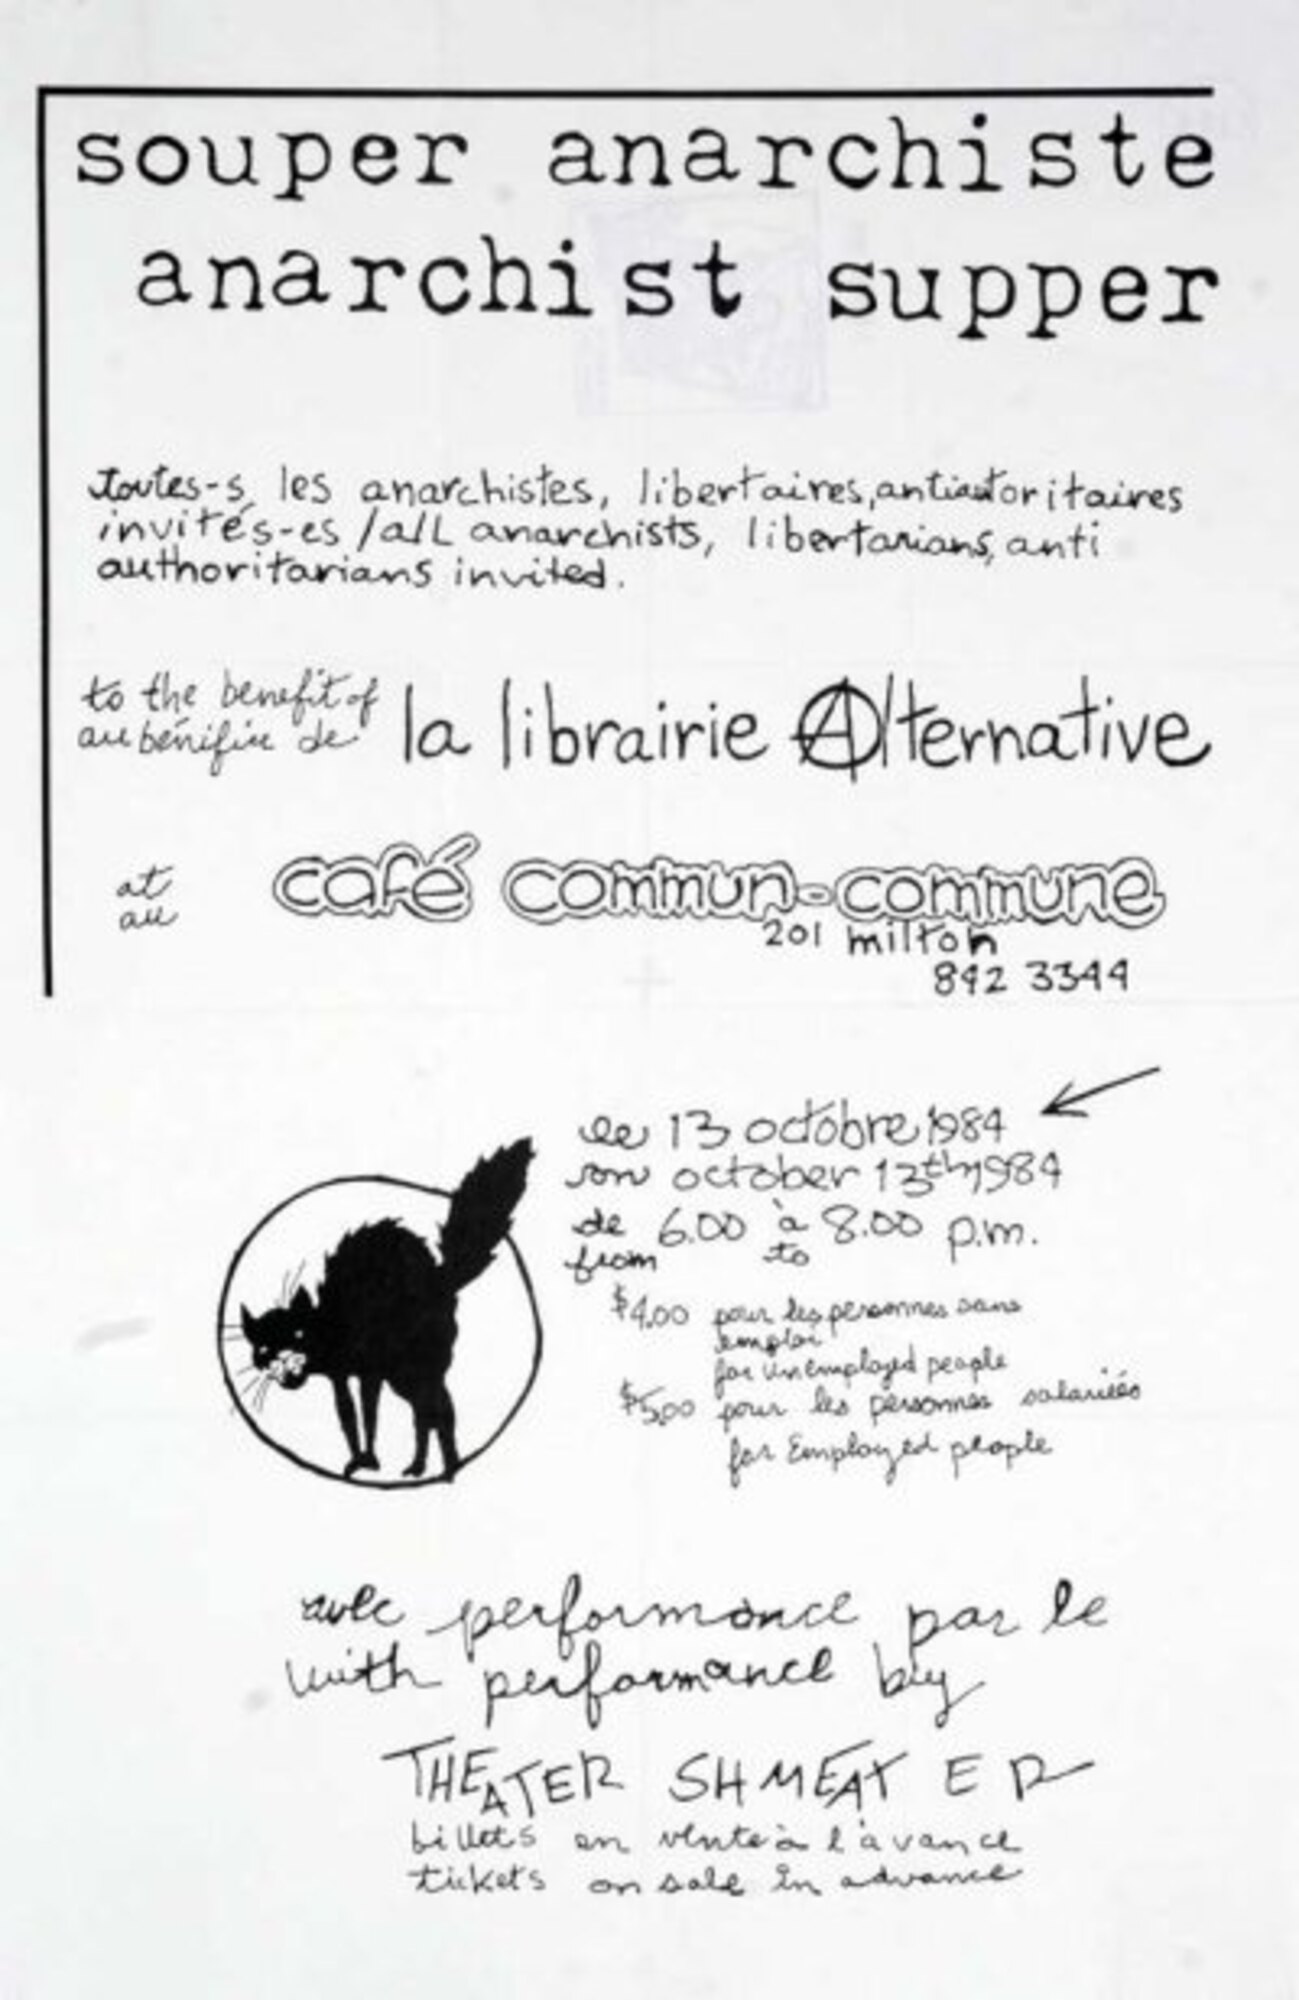 souper anarchiste
anarchist supper
toutes-s les anarchistes, libertaires, antiautoritaires
invités-es / all anarchists, libertarians, anti
authoritarians invited.
to the benefit of
au bénifice de
la librairie Alternative
at
au
café commun-commune
201 milton
842 3344
le 13 octobre 1984
on october 13th 1984
de 6.00 à 8.00 p.m.
from to
$4.00 pour les personnes sans
emploi
for unemployed people
$5.00 pour les personnes salariées
for Employed people
avec performance par le
with performance by
THEATER SHMEAT ER
billets en vente à l'avance
tickets on sale in advance